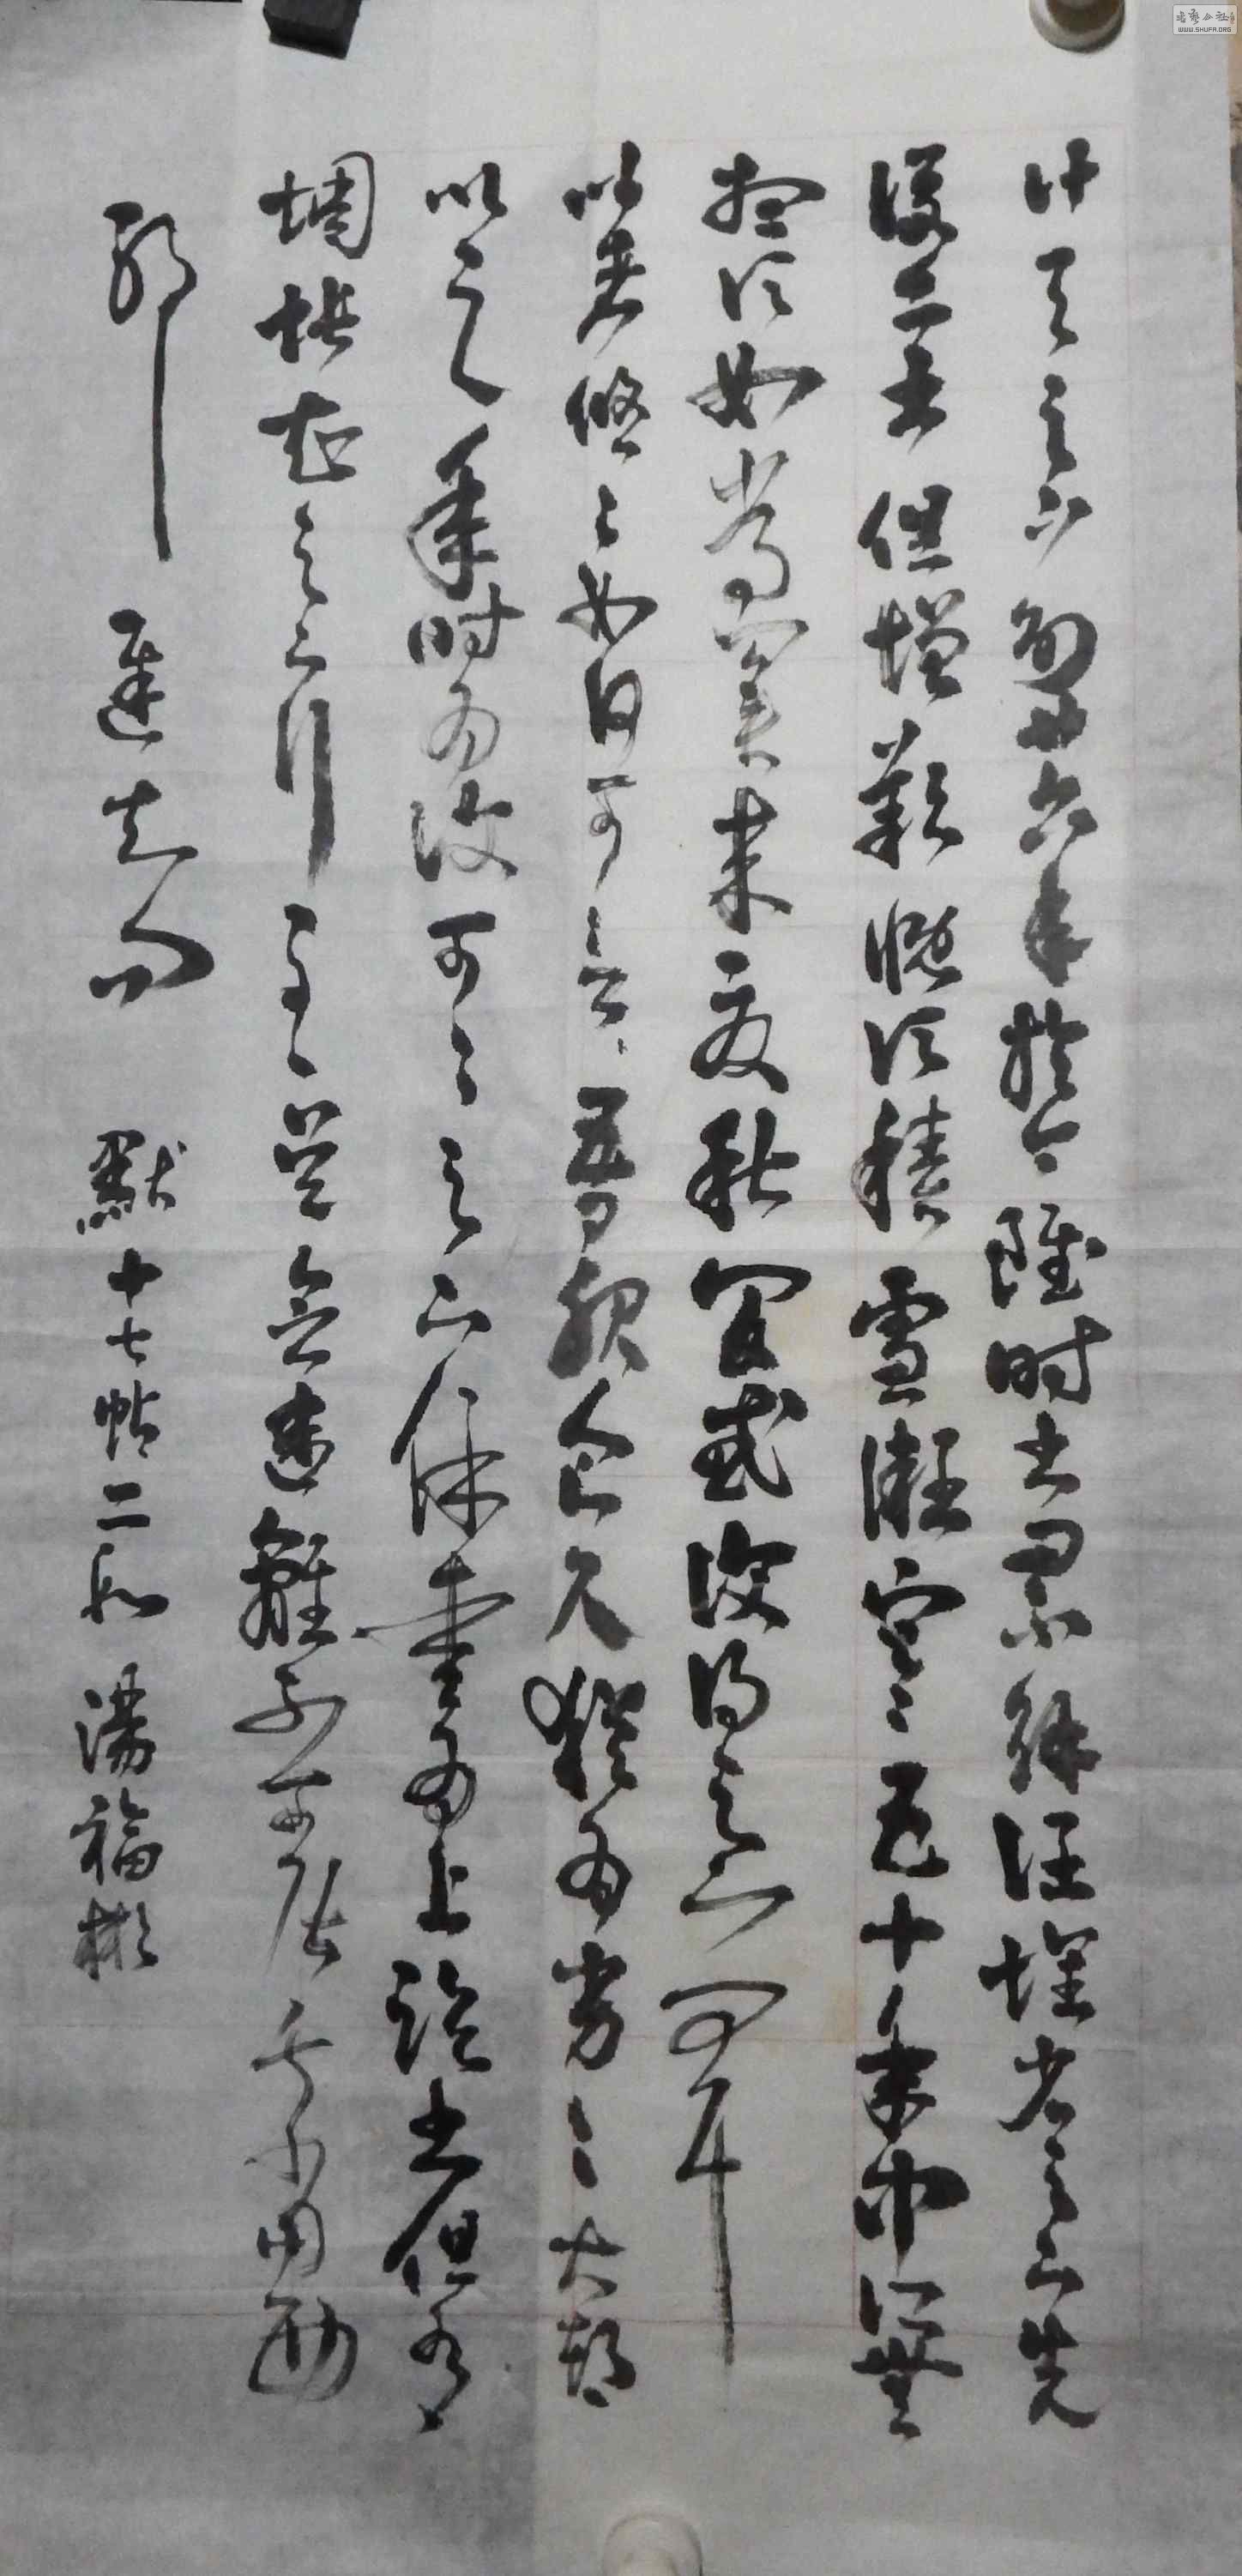 計與足下別廿六年於今雖時書問不解闊懷省足下先
後二書但增歎慨頃積雪凝寒五十年中所無
想頃如常冀來夏秋間或復得足下問耳
比者悠々如何可言吾服食久猶為劣々大都
比之年時為復可々足下保愛為上臨書但有
惆悵知足下行至吳念違離不可居叔當西
耶 遲知問 默十七帖二則 湯福彬
书艺公社
WWW.SHUFA.ORG